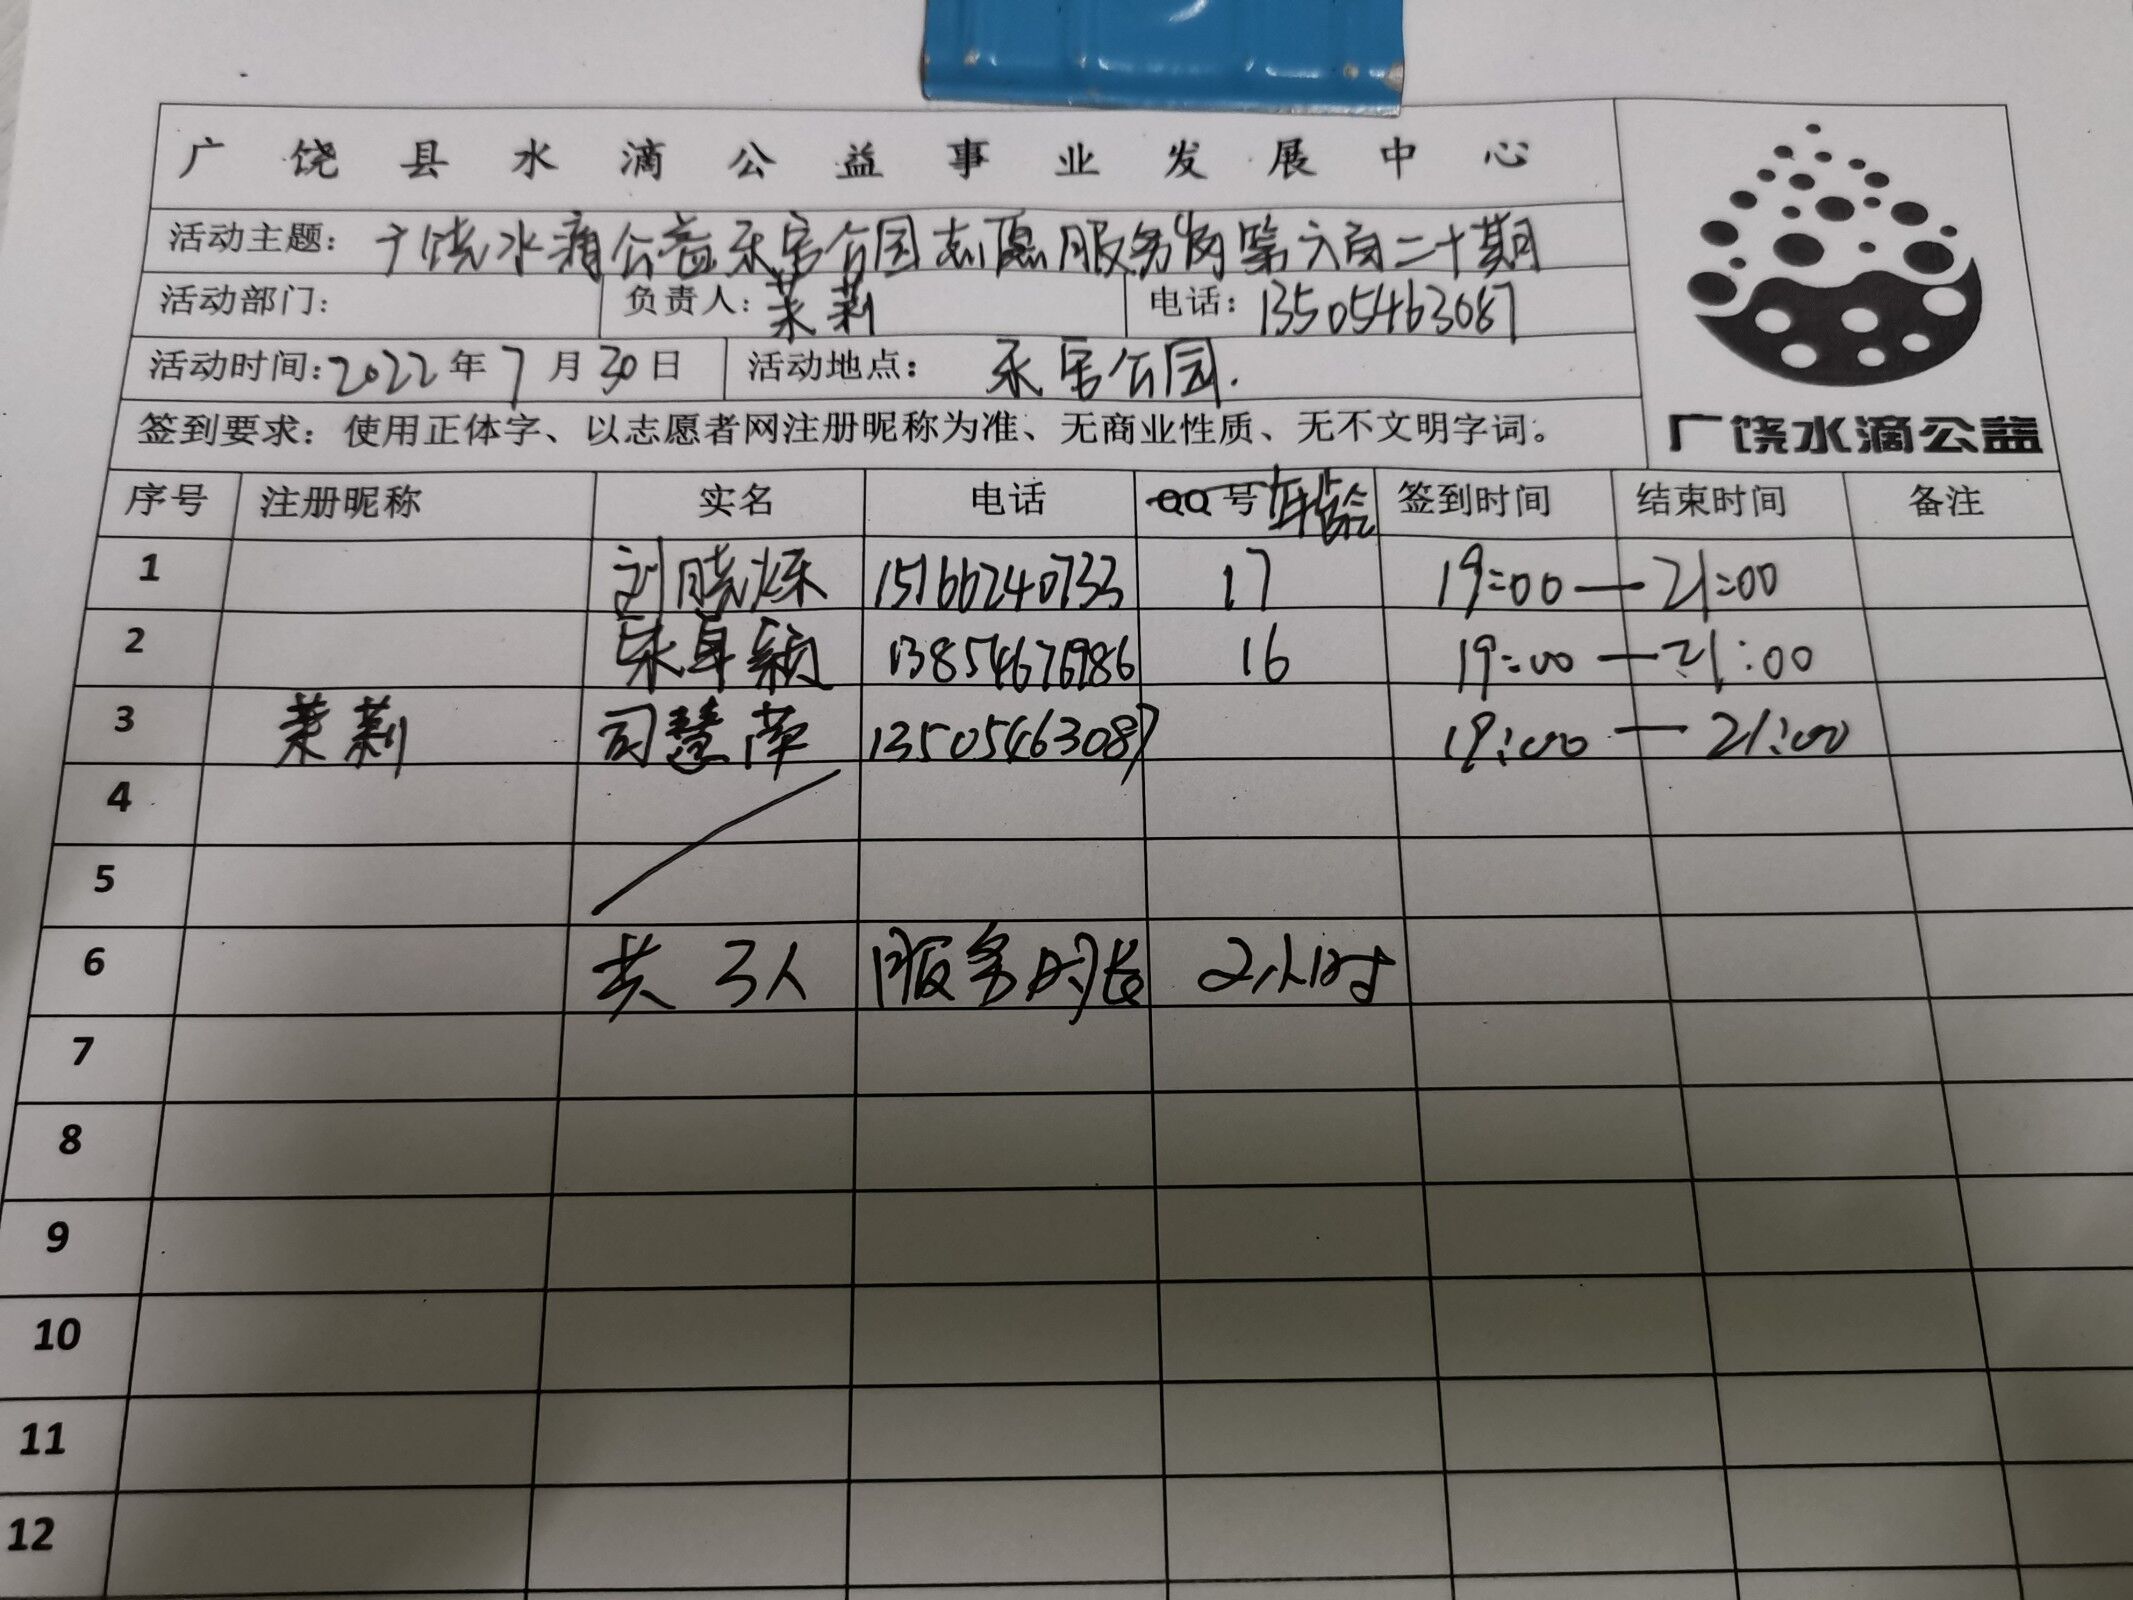 广饶县水滴公益事业发展中心
活动主题：广饶水滴公益乐安公园志愿服务岗第六百二十期
活动部门： 负责人：茉莉 电话：13505463087
活动时间：2022年7月30日 活动地点：乐安公园.
签到要求：使用正体字、以志愿者网注册昵称为准、无商业性质、无不文明字词。
广饶水滴公益
序号 注册昵称 实名 电话 QQ号 年龄 签到时间 结束时间 备注
1 刘晓烁 15166240733 17 19:00—21:00
2 13854676986 16 19:00—21:00
3 茉莉 司慧萍 13505463087 19:00—21:00
4
5
6 共3人 服务时长 2小时
7
8
9
10
11
12